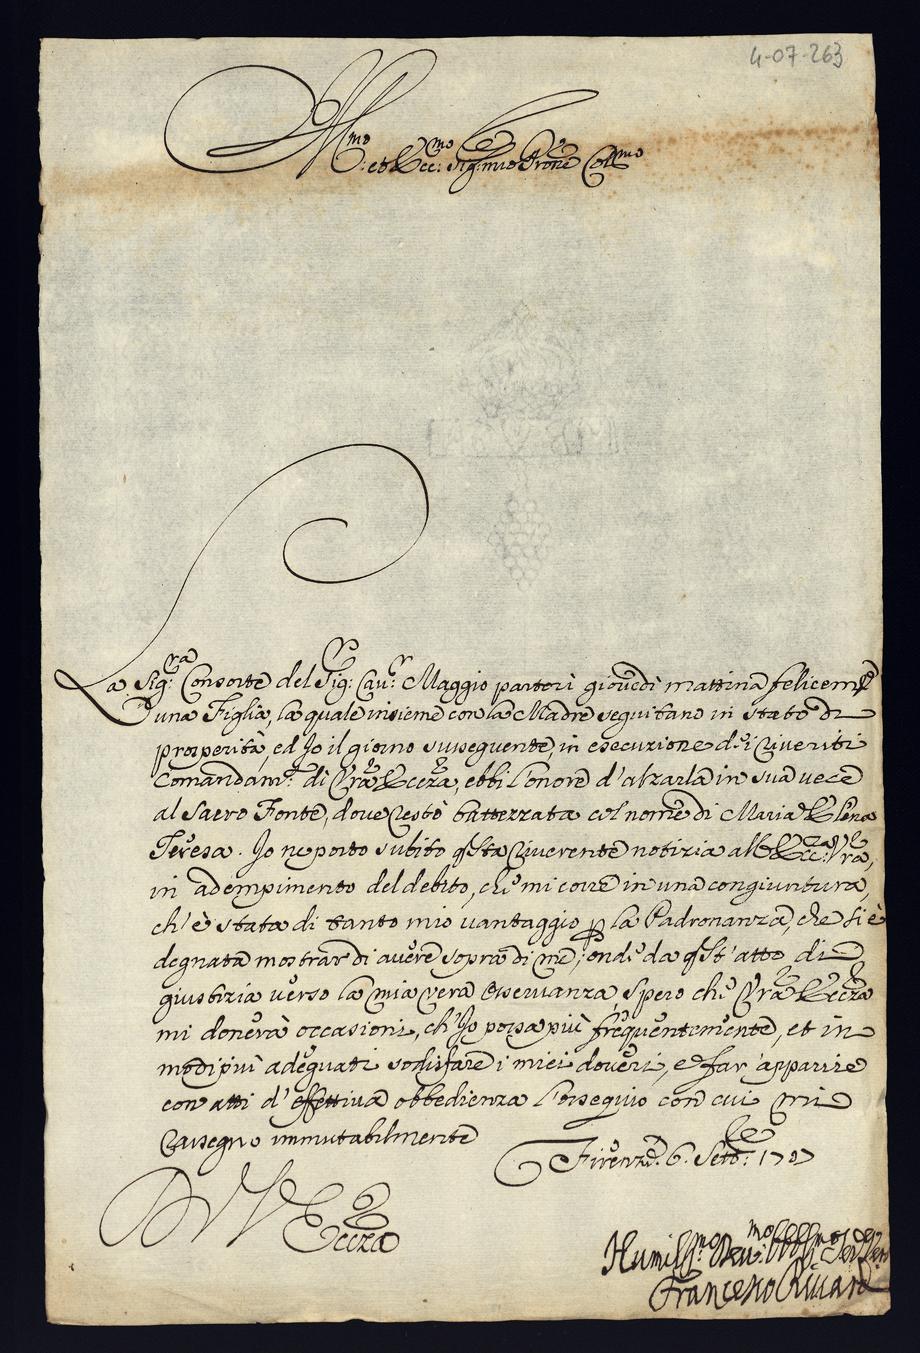 4-07-263
Ill.mo et Ecc.mo Sig: mio Prone Coll.mo
La Sig:ra Consorte del Sig:r Cav:r Maggio partorì giovedì mattina felicem.te
una Figlia, la quale insieme con la Madre seguitano in stato di
prosperità, ed Io il giorno susseguente, in esecuzione dei riveriti
Comandam.ti di Vra Eccza, ebbi l'onore d'alzarla in sua vece
al Sacro Fonte, dove restò battezzata col nome di Maria Elena
Teresa. Io ne porto subito qsta riverente notizia all'Ecc:za Vra,
in adempimento del debito, che mi corre in una congiuntura,
ch'è stata di tanto mio vantaggio p la Padronanza, che si è
degnata mostrar di avere sopra di me; onde da qst'atto di
giustizia verso la mia vera Osservanza, spero che Vra Eccza
mi donerà occasioni, ch'Io possa più frequentemente, et in
modi più adeguati sodisfare i miei doveri, e far apparire
con atti d'effettiva obbedienza l'ossequio con cui mi
rassegno immutabilmente
Firenze 6. Sett:re 1707
D V Eccza
Humiliss.mo Dev.mo Obblig.mo Ser.
Francesco